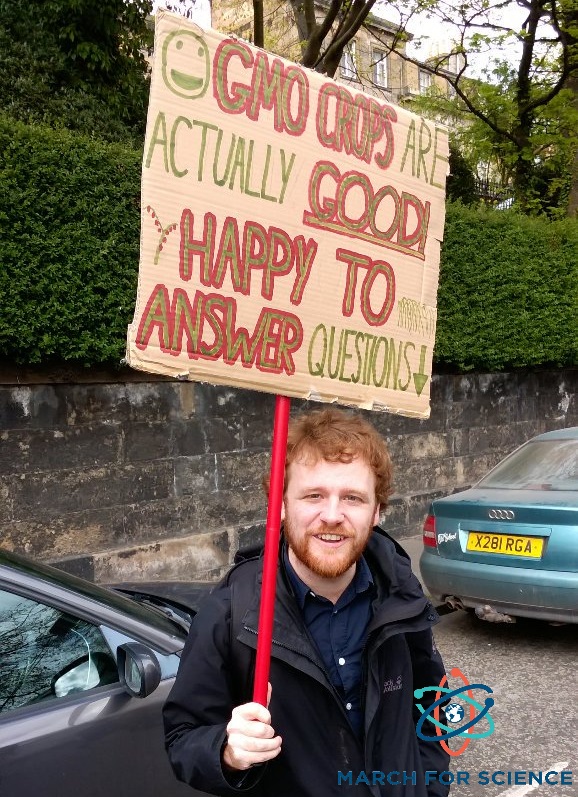 GMO CROPS ARE
ACTUALLY GOOD!
HAPPY TO
ANSWER QUESTIONS
X281 RGA
Jack Wolfskin
MARCH FOR SCIENCE